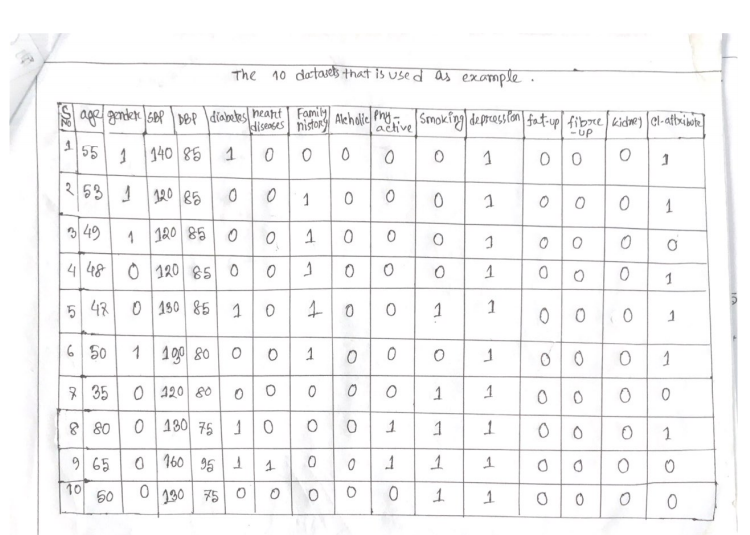 The 10 datasets that is used as example.
S NO age gender SBP DBP diabetes heart diseases Family history Alcholic Phy-active Smoking depression fat-up fibre-up kidney Cl-attribute
1 55 1 140 85 1 0 0 0 0 0 1 0 0 0 1
2 53 1 120 85 0 0 1 0 0 0 1 0 0 0 1
3 49 1 120 85 0 0 1 0 0 0 1 0 0 0 0
4 48 0 120 85 0 0 1 0 0 0 1 0 0 0 1
5 47 0 130 85 1 0 1 0 0 1 1 0 0 0 1
6 50 1 190 80 0 0 1 0 0 0 1 0 0 0 1
7 35 0 120 80 0 0 0 0 0 1 1 0 0 0 0
8 80 0 130 75 1 0 0 0 1 1 1 0 0 0 1
9 65 0 160 95 1 1 0 0 1 1 1 0 0 0 0
10 50 0 130 75 0 0 0 0 0 1 1 0 0 0 0